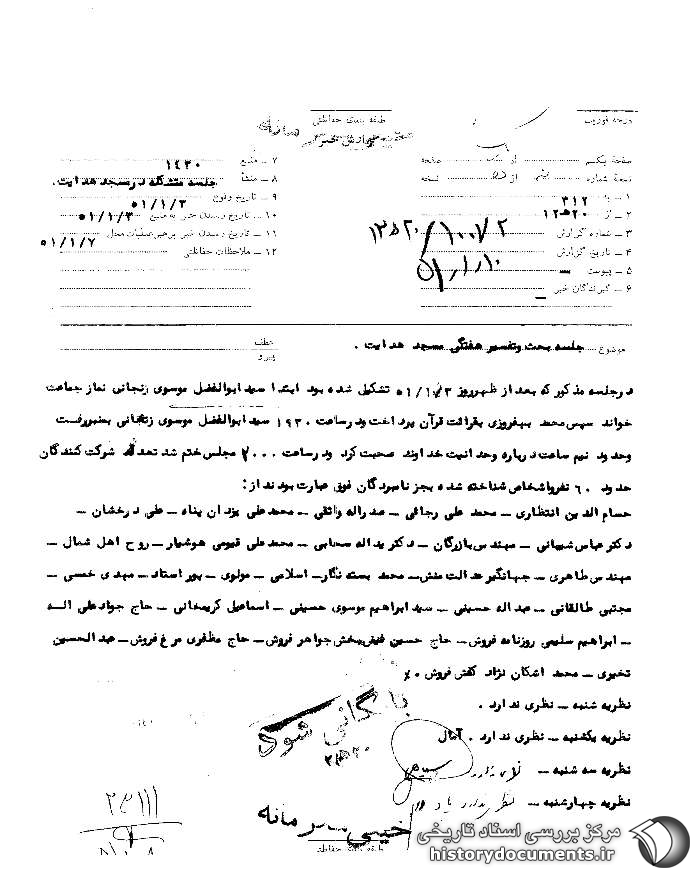 درجه فوریت
طبقه بندی حفاظتی
خیلی محرمانه
گزارش خبر
صفحه یکم از یک صفحه
نسخه شماره از نسخه
۱ – به ۳۱۲
۲ – از ۲۰ ﻫ ۱۲
۳ – شماره گزارش ۱۰۰۷۲ / ۲۰ ﻫ ۱۲
۴ – تاریخ گزارش ۵۱/۱/۱۰
۵ – پیوست –
۶ – گیرندگان خبر –
۷ – منبع ۱۴۳۰
۸ – منشأ جلسه متشکله در مسجد هدایت.
۹ – تاریخ وقوع ۵۱/۱/۳
۱۰ – تاریخ رسیدن خبر به منبع ۵۱/۱/۳
۱۱ – تاریخ رسیدن خبر برهبر عملیات محل ۵۱/۱/۷
۱۲ – ملاحظات حفاظتی
موضوع جلسه بحث وتفسیر هفتگی مسجد هدایت .
عطف
پیرو
درجلسه مذکور که بعد از ظهرروز ۵۱/۱/۳ تشکیل شده بود ابتدا سید ابوالفضل موسوی زنجانی نماز جماعت
خواند سپس محمد بهفروزی بقرائت قرآن پرداخت ودرساعت ۱۹۳۰ سید ابوالفضل موسوی زنجانی بمنبررفت
وحدود نیم ساعت درباره وحدانیت خداوند صحبت کرد ودرساعت ۲۰۰۰ مجلس ختم شد تعداد شرکت کنندگان
حدود ۶۰ نفرواشخاص شناخته شده بجز نامبردگان فوق عبارت بودند از :
حسام الدین انتظاری – محمد علی رجائی – صدراله واثقی – محمدعلی یزدان پناه – علی درخشان –
دکترعباس شیبانی – مهندس بازرگان – دکتر یداله سحابی – محمدعلی قیومی هوشیار – روح اهل شمال –
مهندس طاهری – جهانگیر عدالت منش – محمد بسته نگار – اسلامی – مولوی – پور استاد – مهدی خمسی –
مجتبی طالقانی – عبداله حسینی – سید ابراهیم موسوی حسینی – اسماعیل کریمخانی – حاج جوادعلی اله
– ابراهیم سلیمی روزنامه فروش – حاج حسین فیض بخش جواهر فروش – حاج مظفری مرغ فروش – عبدالحسین
تخیری – محمد اشکان نژاد کفش فروش .
نظریه شنبه – نظری ندارد .
نظریه یکشنبه – نظری ندارد . آمال
نظریه سه شنبه – نظری ندارد
نظریه چهارشنبه – نظری ندارد
بایگانی شود
خیلی محرمانه
طبقه بندی حفاظتی
مرکز بررسی اسناد تاریخی
historydocuments.ir